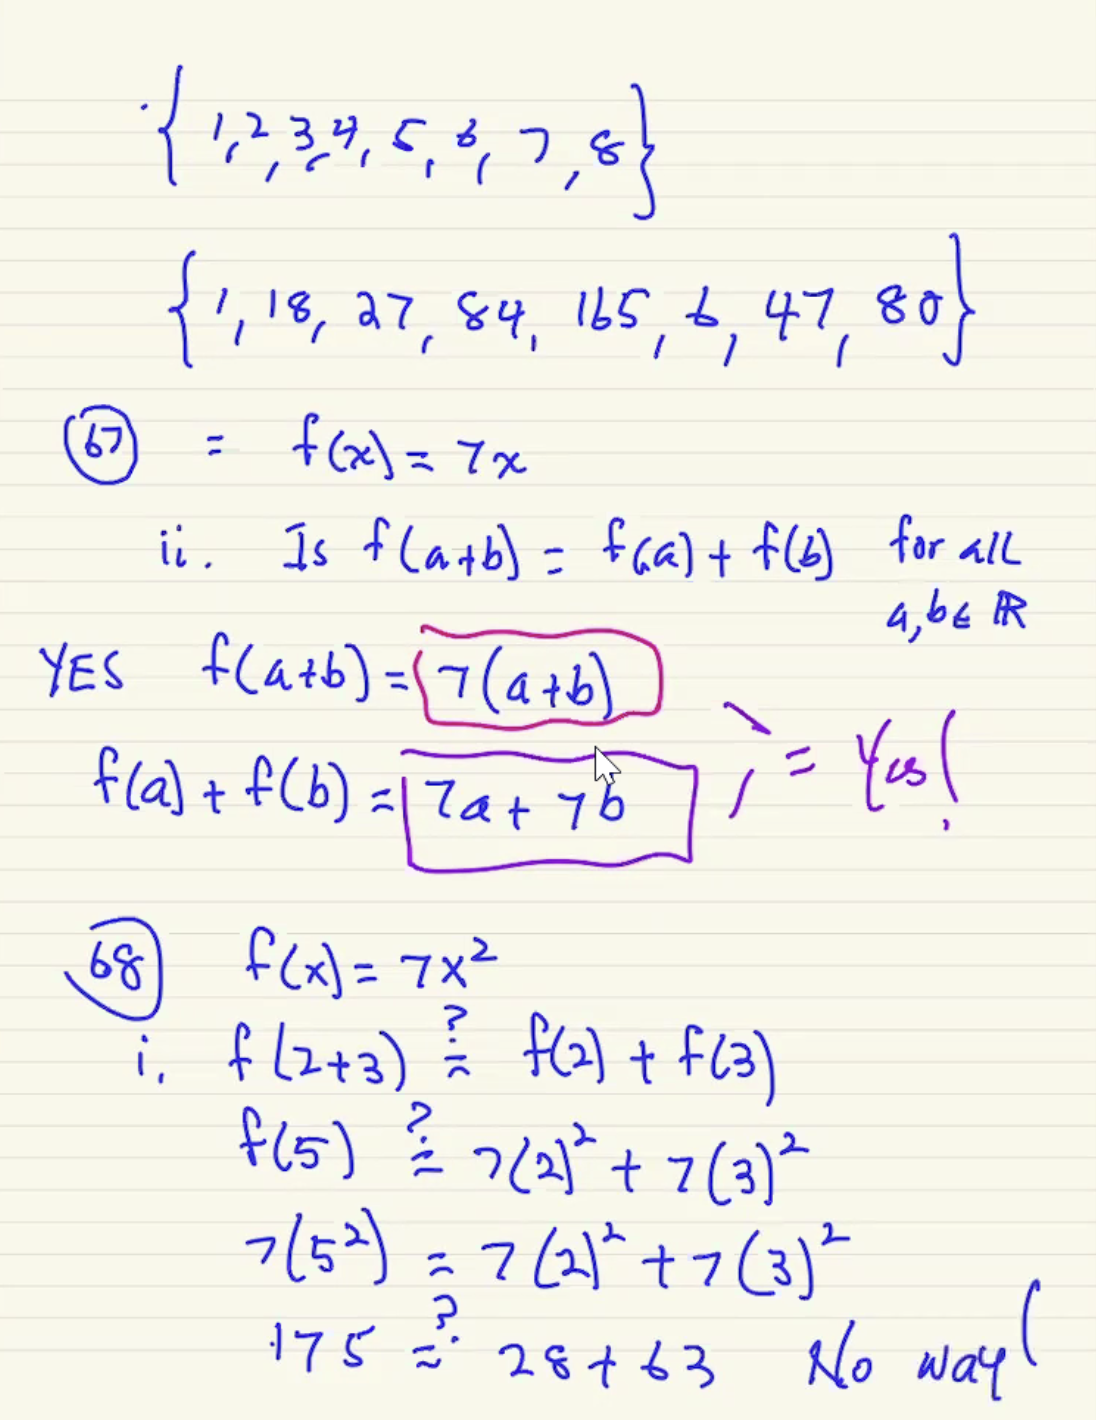 {1, 2, 3, 4, 5, 6, 7, 8}
{1, 18, 27, 84, 165, 6, 47, 80}
67 = f(x) = 7x
ii. Is f(a+b) = f(a) + f(b) for all
a, b ∈ ℝ
YES f(a+b) = 7(a+b)
= Yes!
f(a) + f(b) = 7a + 7b
68 f(x) = 7x²
i. f(2+3) ≟ f(2) + f(3)
f(5) ≟ 7(2)² + 7(3)²
7(5²) = 7(2)² + 7(3)²
175 ≟ 28 + 63 No way!